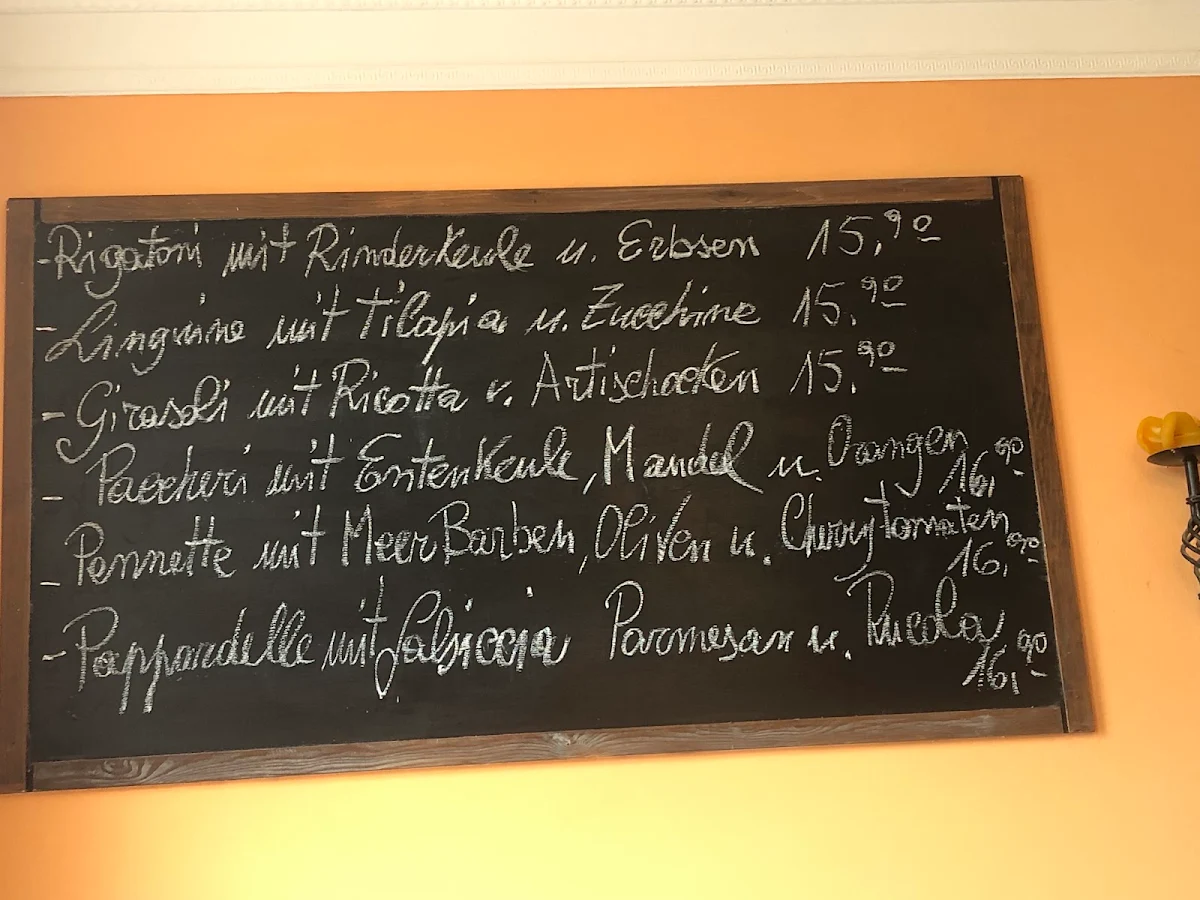 - Rigatoni mit Rinderkeule u. Erbsen 15,90
- Linguine mit Tilapia u. Zucchine 15,90
- Girasoli mit Ricotta u. Artischocken 15,90
- Paccheri mit Entenkeule, Mandel u. Orangen 16,90
- Pennette mit MeerBarben, Oliven u. Cherrytomaten 16,90
- Pappardelle mit Salsiccia Parmesan u. Rucola 16,90